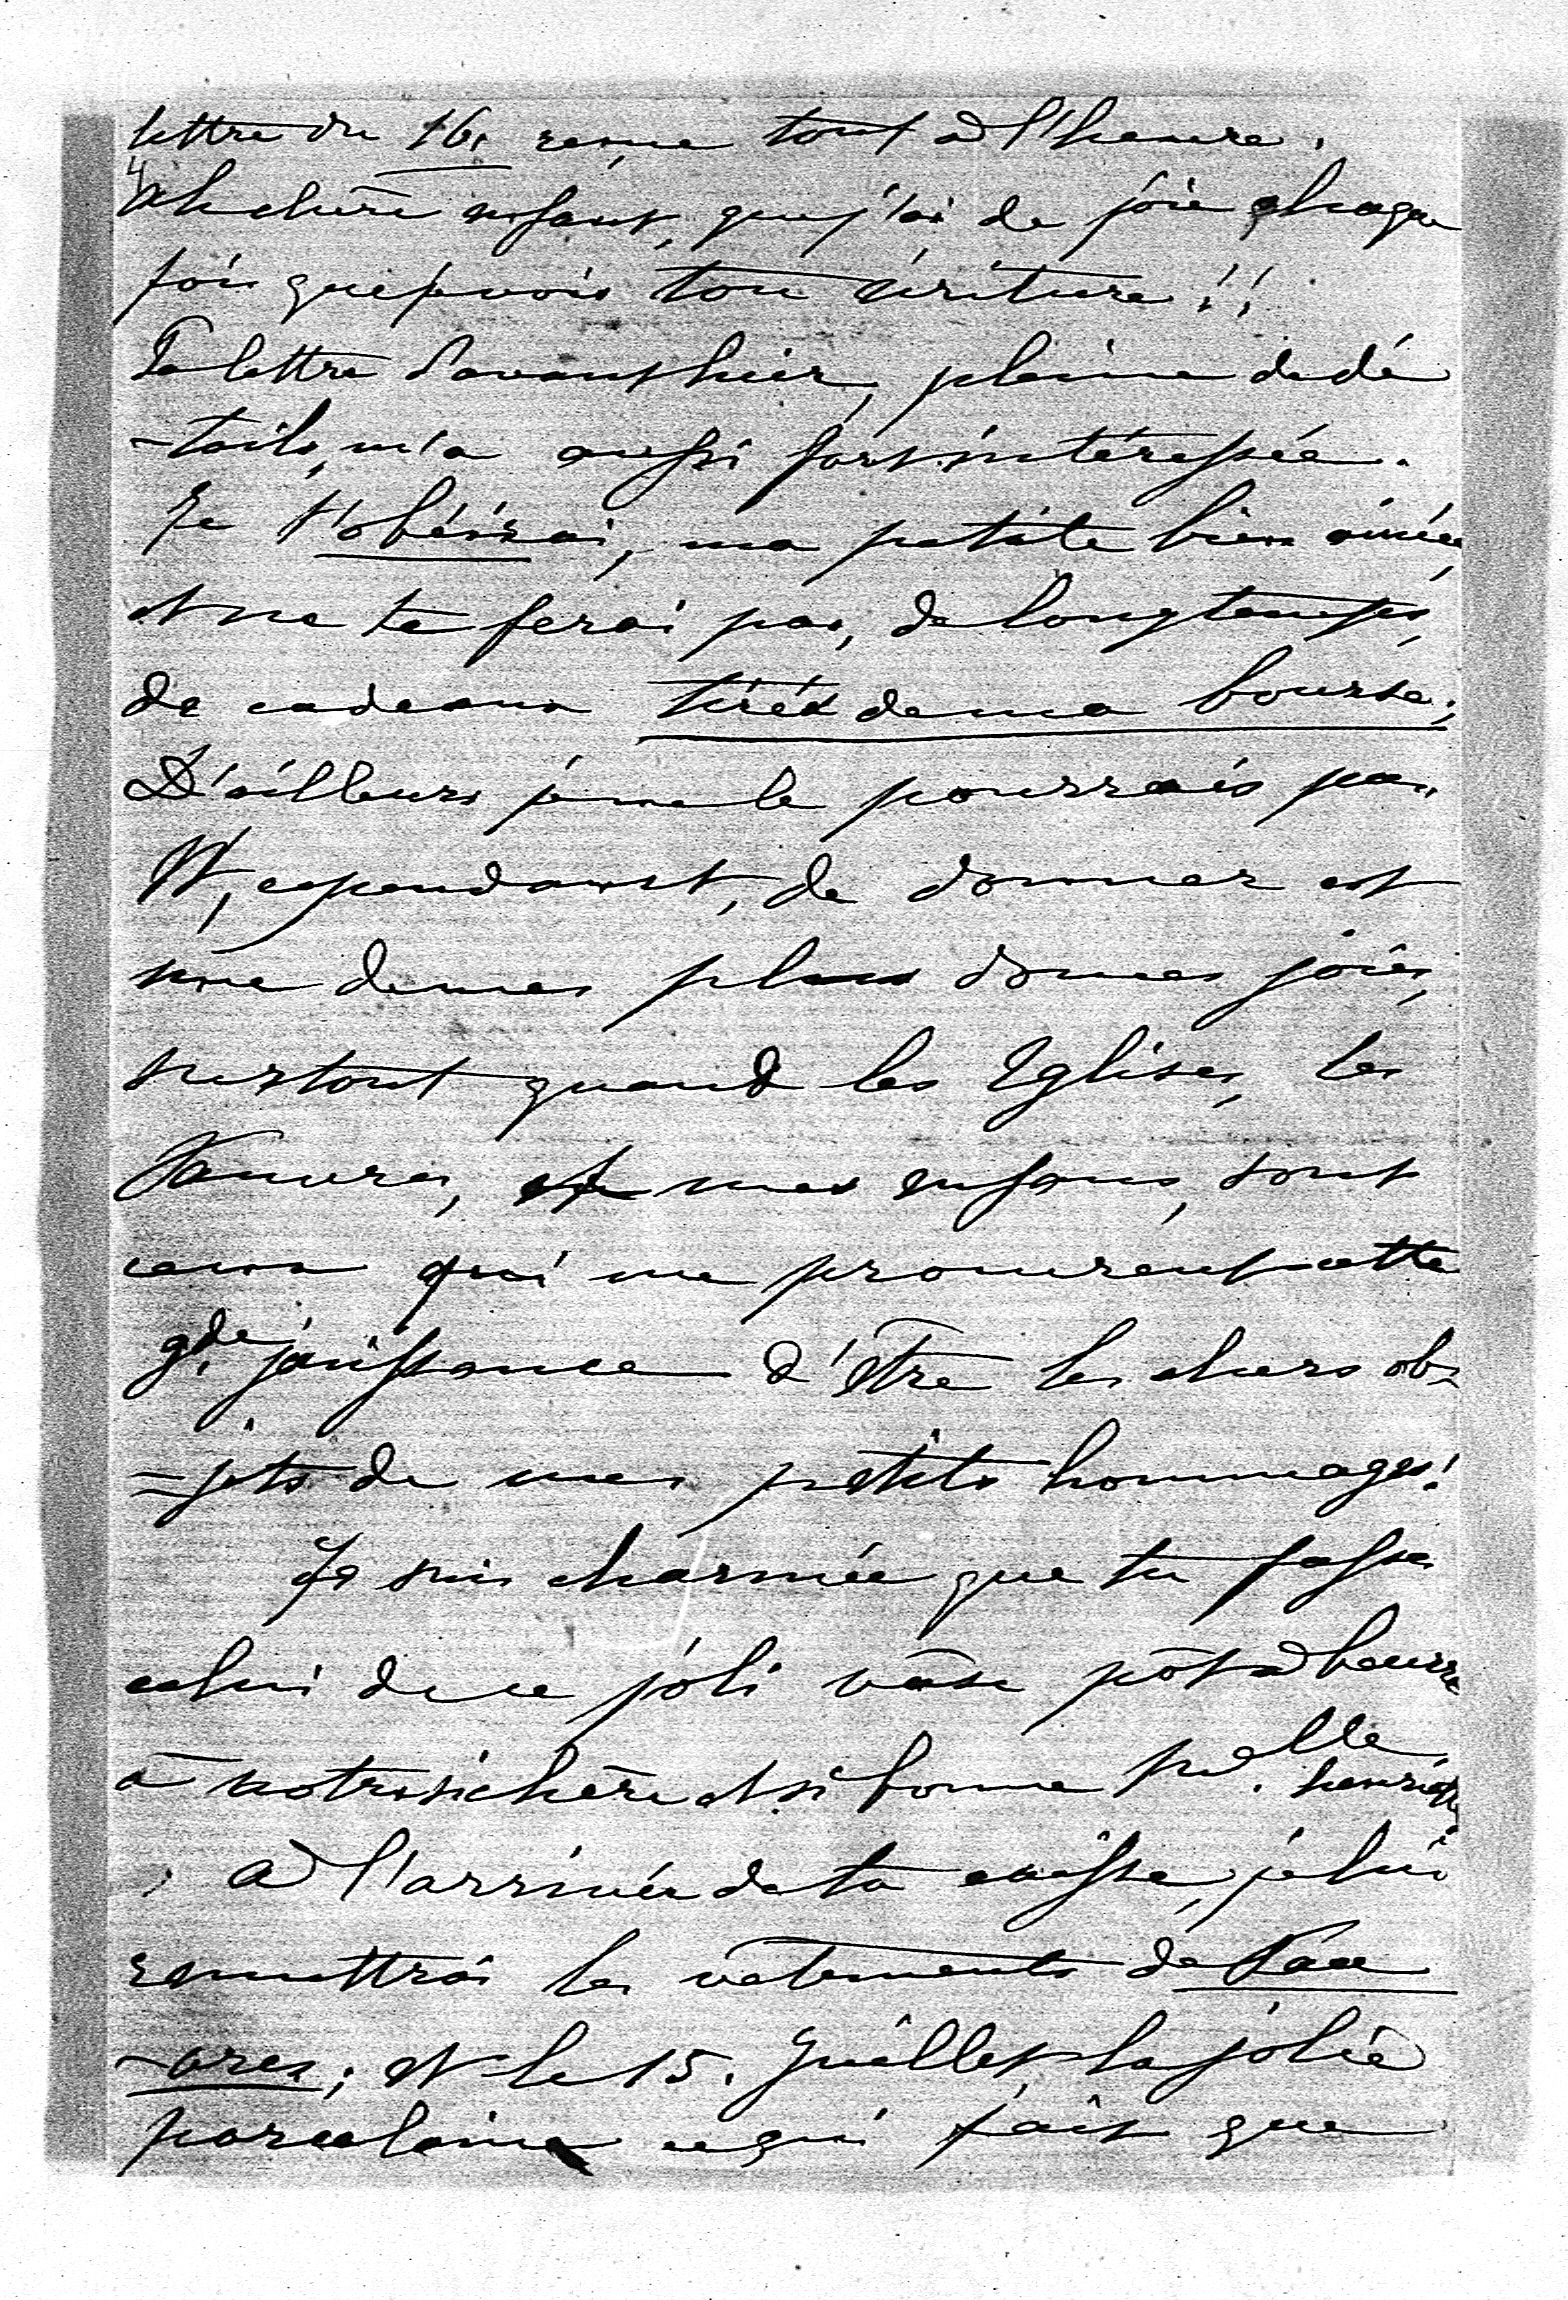 lettre du 16. reçue tout à l'heure.
4
Ah chère enfant, que j'ai de joie chaque
fois que je vois ton écriture !!
Ta lettre d'avant hier, pleine de dé
-tails, m'a aussi fort intéressée.
Je t'obéirai, ma petite bien aimée,
et ne te ferai pas, de longtemps,
de cadeaux tirés de ma bourse;
D'ailleurs je ne le pourrais pas.
Et, cependant, de donner est
une de mes plus douces joies,
surtout quand les Eglises, les
Pauvres, et mes enfans, sont
ceux qui me procurent cette
gde. jouissance d'être les chers ob-
=jets de mes petits hommages!
Je suis charmée que tu fasses
celui de ce joli vase pôt à beurre
à notre si chère et si bonne henriette
à l'arrivée de ta caisse, je lui
remettrai les vêtements de Pau
-vres; et le 15. Juillet, la jolie
porcelaine ce qui fait que